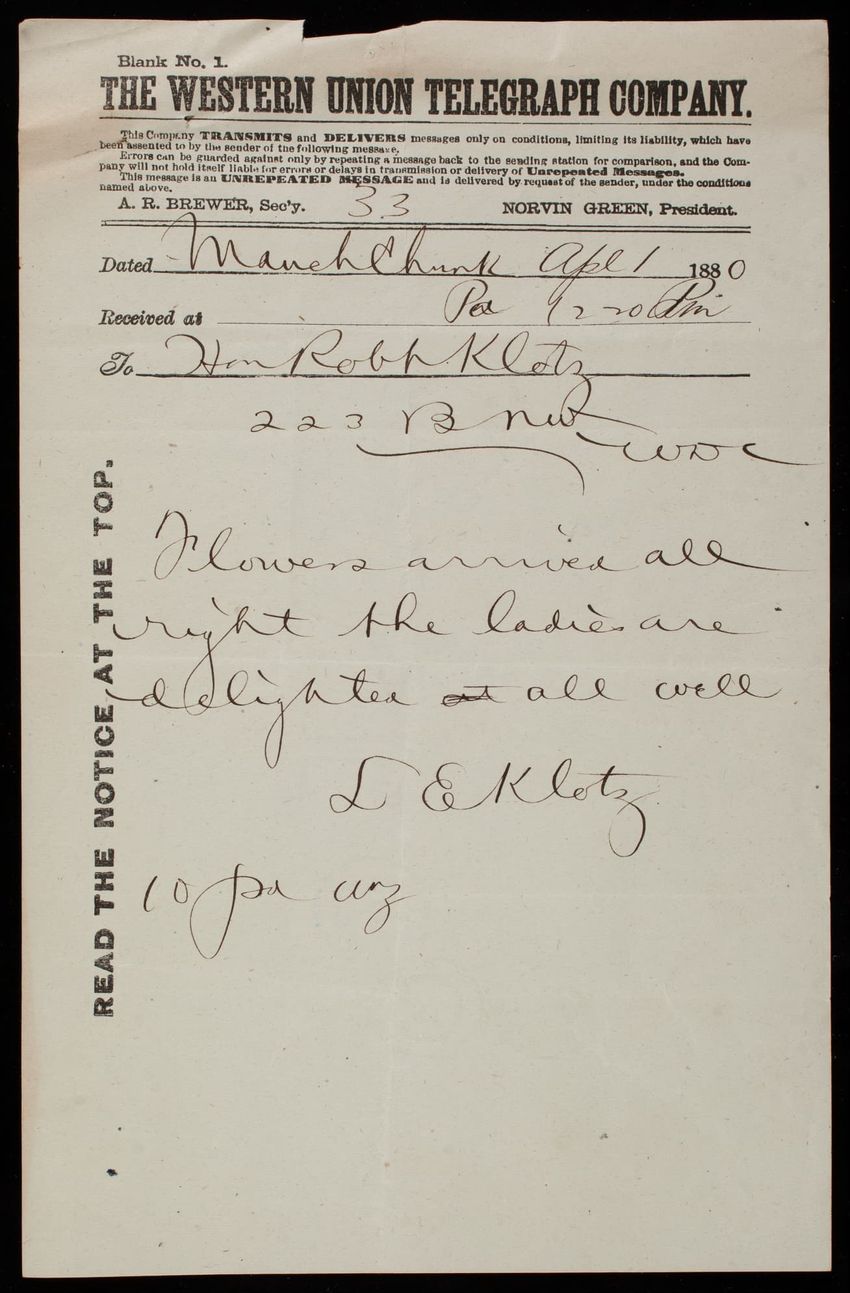 Blank No. 1.
THE WESTERN UNION TELEGRAPH COMPANY.
This Company TRANSMITS and DELIVERS messages only on conditions, limiting its liability, which have
been assented to by the sender of the following message.
Errors can be guarded against only by repeating a message back to the sending station for comparison, and the Com-
pany will not hold itself liable for errors or delays in transmission or delivery of Unrepeated Messages.
This message is an UNREPEATED MESSAGE and is delivered by request of the sender, under the conditions
named above.
A. R. BREWER, Sec'y. 33 NORVIN GREEN, President.
Dated Mauch Chunk Apl 1 1880
Received at Pa 12 20 Pm
To Hon Robt Klotz
223 B NW
WDC
Flowers arrived all
right the ladies are
delighted at all well
L E Klotz
10 pd
READ THE NOTICE AT THE TOP.